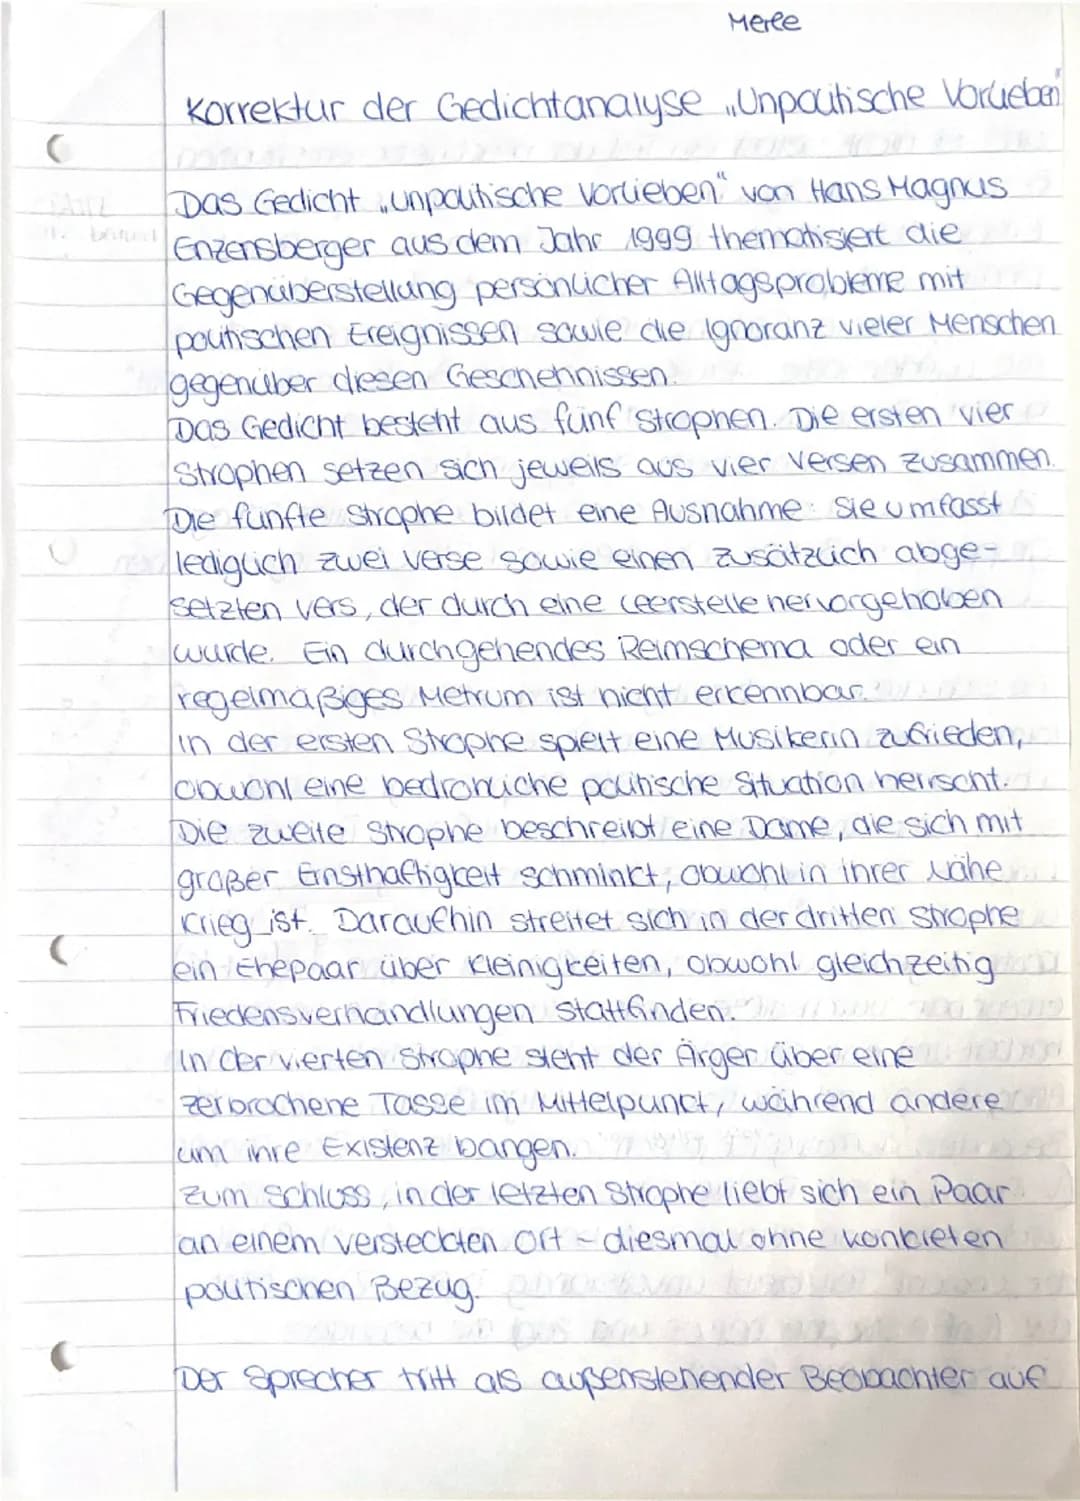 Merle
Korrektur der Gedichtanalyse „Unpolitische Vorlieben"
Das Gedicht „Unpolitische Vorlieben" von Hans Magnus
Enzensberger aus dem Jahr 1999 thematisiert die
Gegenüberstellung persönlicher Alltagsprobleme mit
politischen Ereignissen sowie die Ignoranz vieler Menschen
gegenüber diesen Geschehnissen.
Das Gedicht besteht aus fünf Strophen. Die ersten vier
Strophen setzen sich jeweils aus vier Versen zusammen.
Die fünfte Strophe bildet eine Ausnahme: Sie umfasst
lediglich zwei Verse sowie einen zusätzlich abge-
setzten Vers, der durch eine Leerstelle hervorgehoben
wurde. Ein durchgehendes Reimschema oder ein
regelmäßiges Metrum ist nicht erkennbar.
In der ersten Strophe spielt eine Musikerin zufrieden,
obwohl eine bedrohliche politische Situation herrscht.
Die zweite Strophe beschreibt eine Dame, die sich mit
großer Ernsthaftigkeit schminkt, obwohl in ihrer Nähe
Krieg ist. Daraufhin streitet sich in der dritten Strophe
ein Ehepaar über Kleinigkeiten, obwohl gleichzeitig
Friedensverhandlungen stattfinden.
In der vierten Strophe steht der Ärger über eine
zerbrochene Tasse im Mittelpunkt, während andere
um ihre Existenz bangen.
Zum Schluss, in der letzten Strophe liebt sich ein Paar
an einem versteckten Ort - diesmal ohne konkreten
politischen Bezug.
Der Sprecher tritt als außenstehender Beobachter auf